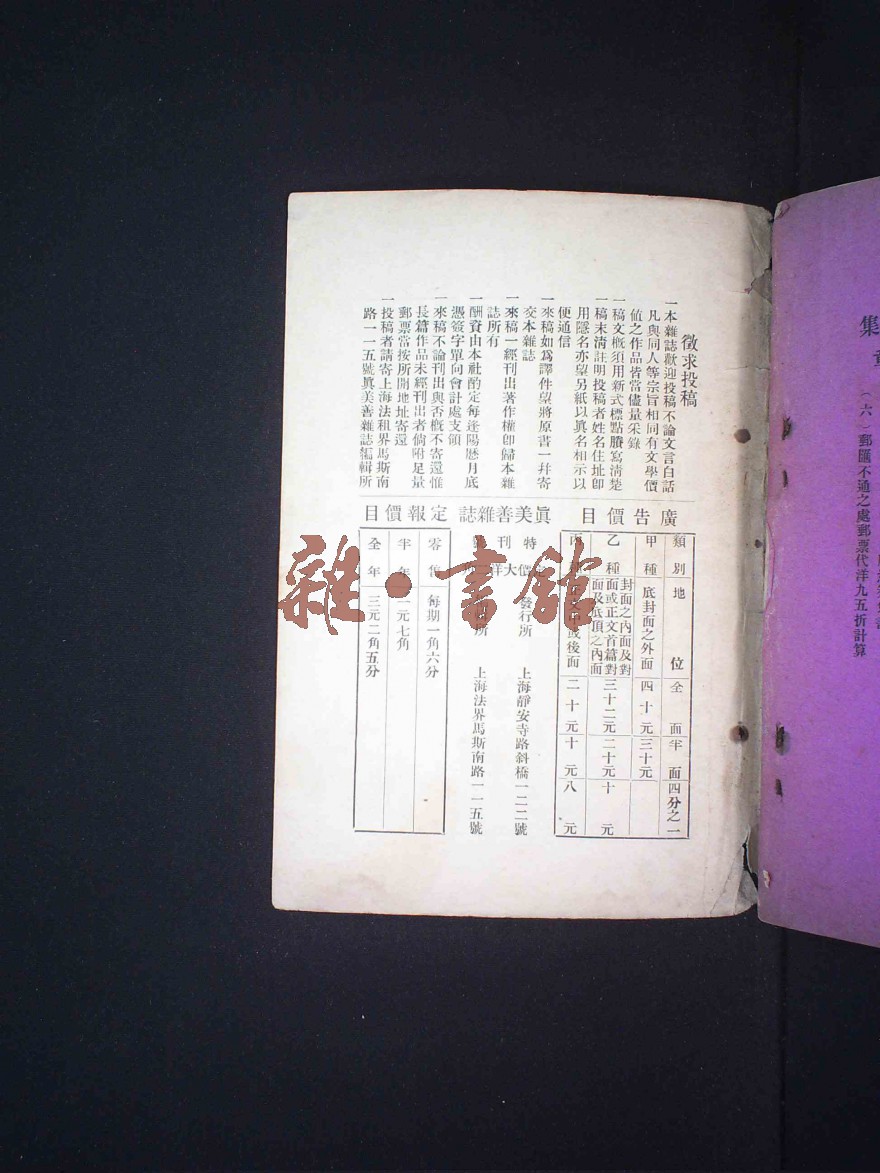 徵求投稿
一本雜誌歡迎投稿不論文言白話
凡與同人等宗旨相同有文學價
値之作品皆當儘量采錄
一稿文概須用新式標點謄寫淸楚
一稿末淸註明投稿者姓名住址卽
用隱名亦望另紙以眞名相示以
便通信
一來稿如爲譯件望將原書一幷寄
交本雜誌
一來稿一經刊出著作權卽歸本雜
誌所有
一酬資由本社酌定每逢陽歷月底
憑簽字單向會計處支領
一來稿不論刊出與否概不寄還惟
長篇作品未經刊出者倘附足量
郵票當按所開地址寄還
一投稿者請寄上海法租界馬斯南
路一一五號眞美善雜誌編輯所
廣告價目
類別 地位 全面 半面 四分之一
甲種 底封面之外面 四十元 三十元
乙種 封面之內面及對
面或正文首篇對
面及底頂之內面 三十二元 二十元 十元
丙 或後面 二十元 十元 八元
眞美善雜誌
特刊 大洋
發行所 上海靜安寺路斜橋一二二號
所 上海法界馬斯南路一一五號
定報價目
零售 每期一角六分
半年 元七角
全年 三元二角五分
雜·書館
集
(六)郵匯不通之處郵票代洋九五折計算